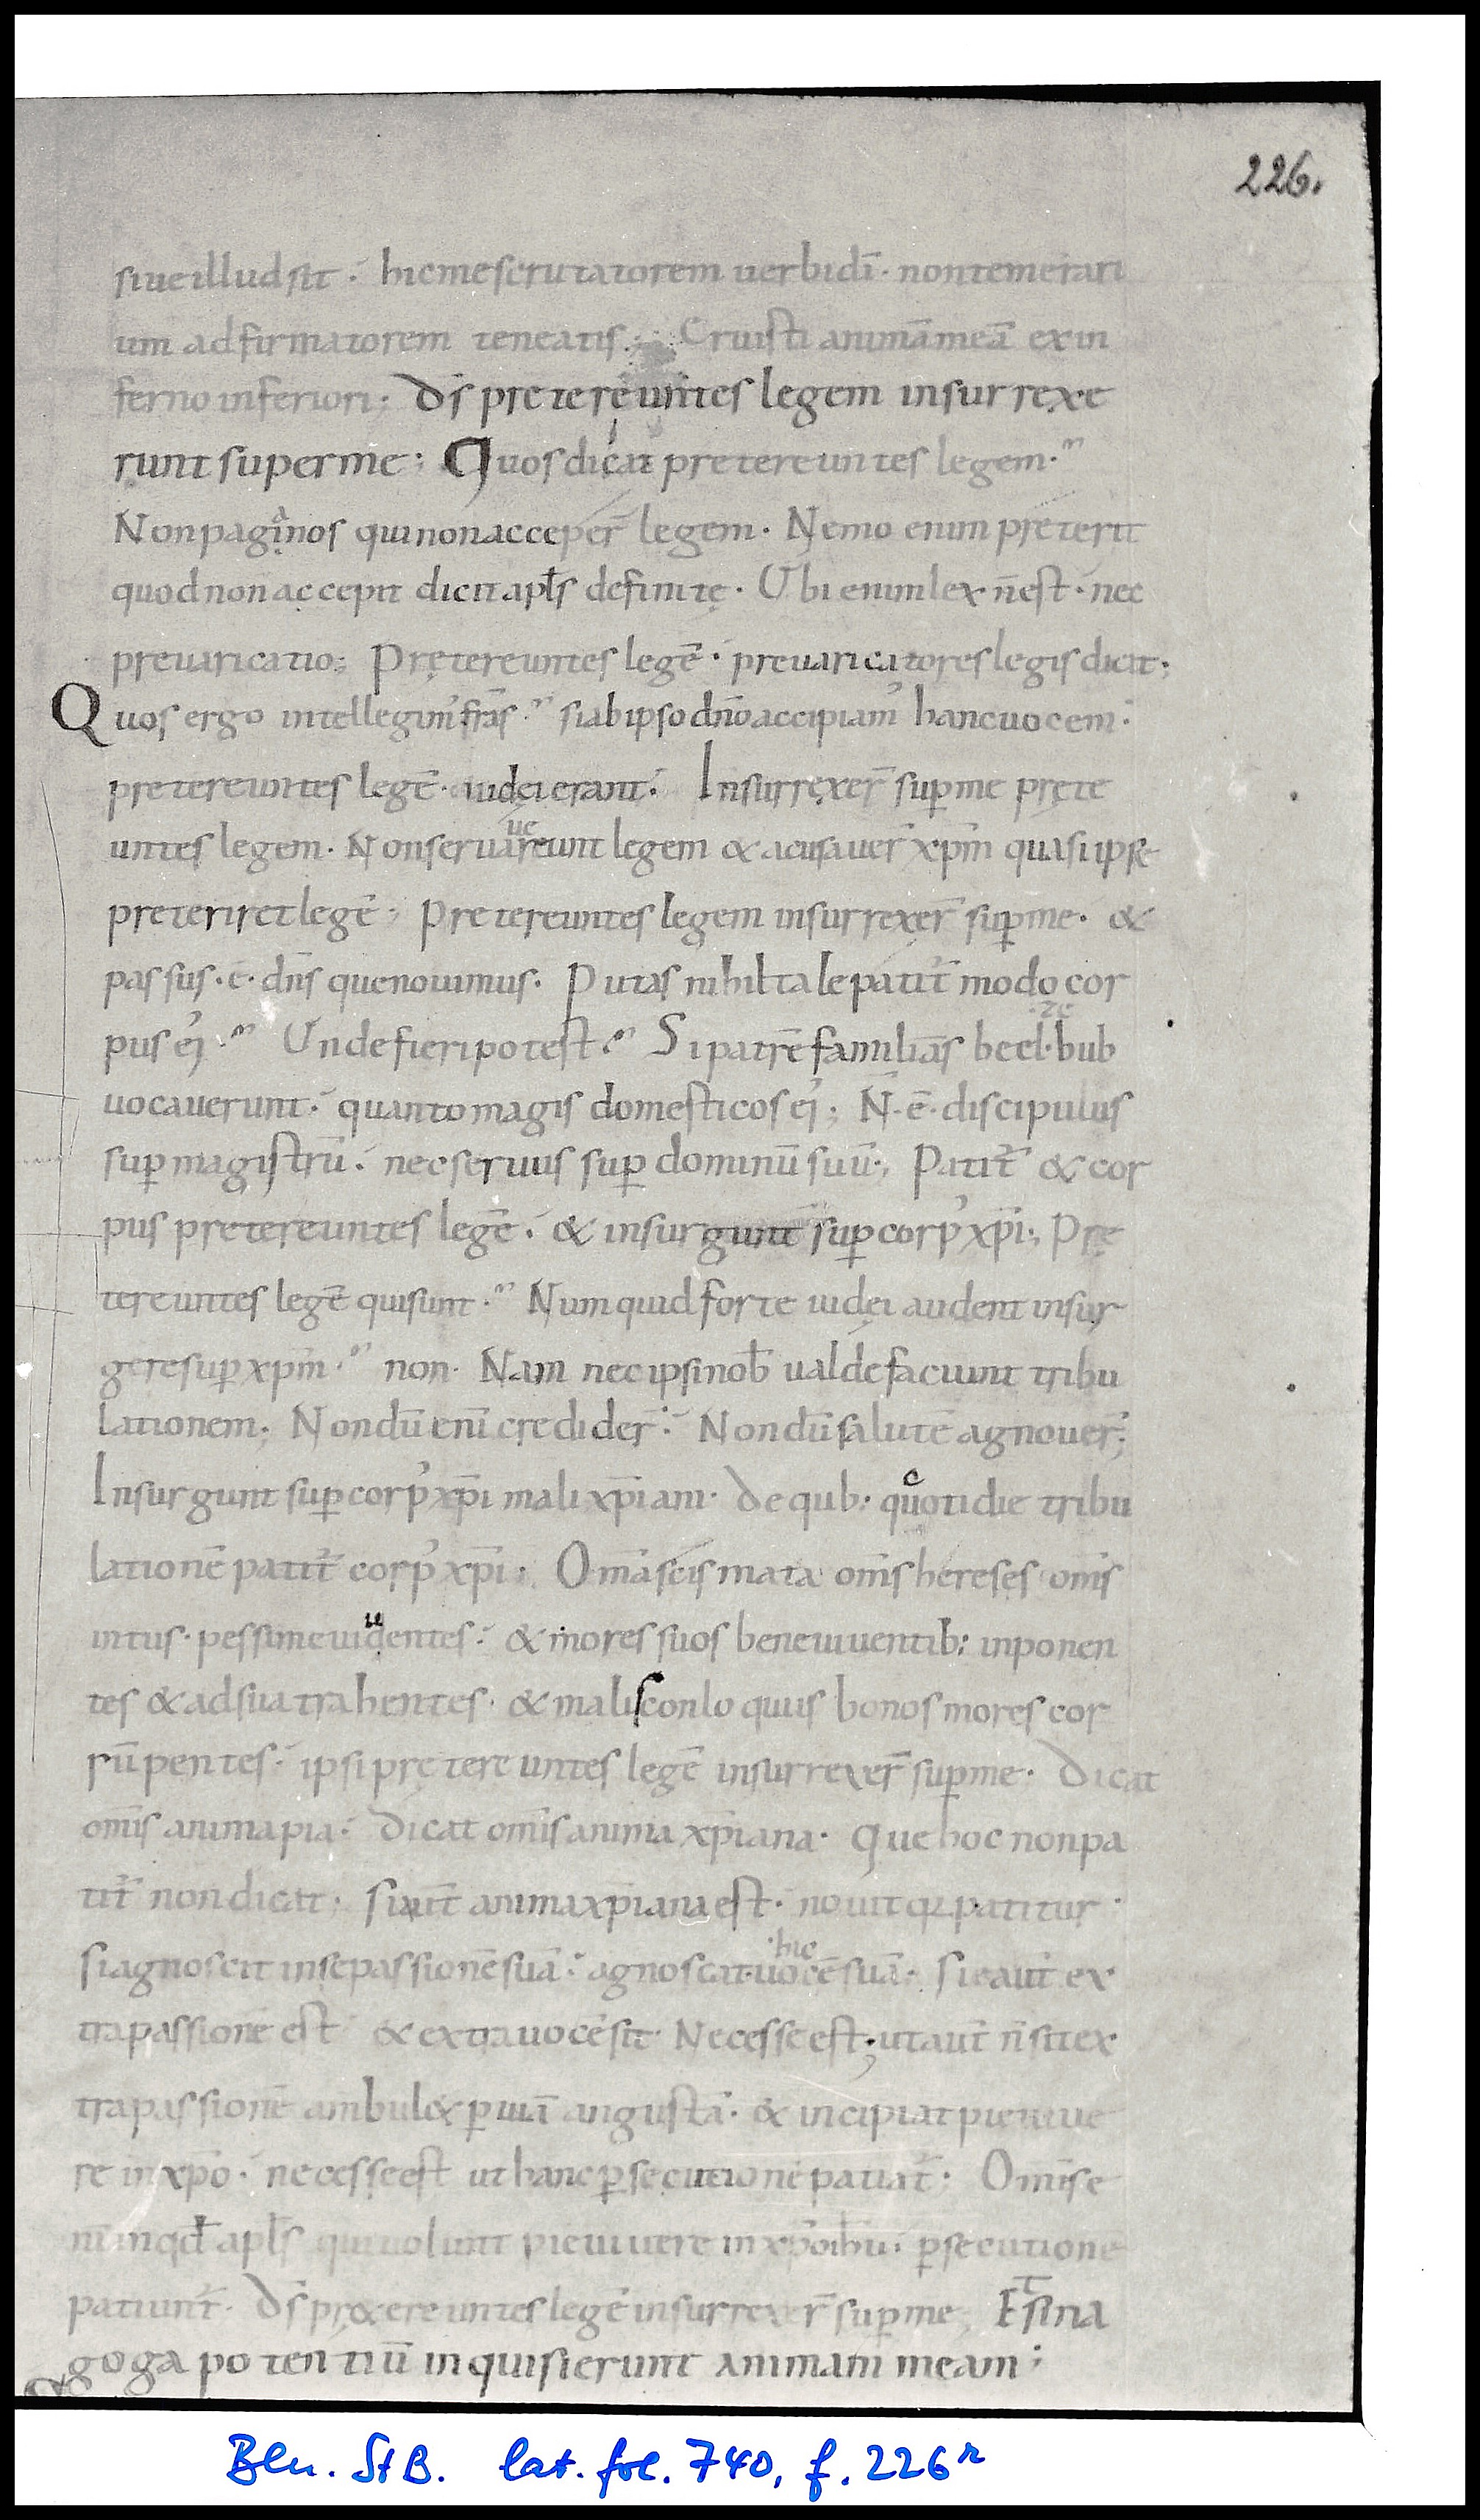 226.
siue illud sit · hic me scrutatorem uerbi dī · non temerari
um adfirmatorem teneatis. Eruisti animā meā ex in
ferno inferiori; Ds̄ pretereuntes legem insurrexe
runt super me; Quos dicit pretereuntes legem ·
Non paganos qui non acceper̄ legem. Nemo enim preterit
quod non accepit dicit apl̄s definitę. Ubi enim lex n̄ est · nec
preuaricatio; Pręter euntes legē · preuaricatores legis dicit;
Quos ergo intellegim' fr̄s · si ab ipso dn̄o accipiam' hanc uocem ·
pretereuntes legē · iudei erant. Insurrexer̄ sup me pręte
untes legem. Non seruauereunt legem & acusauer̄ xp̄m quasi ipse
preteriret legē; Pretereuntes legem insurrexer̄ sup me. &
passus · ē · dn̄s que nouimus. Putas nihil tale patit̄ modo cor
pus ei' · Unde fieri potest · Si patrē familias beel·ze·bub
uocauerunt · quanto magis domesticos ei'; N̄ · ē · discipulus
sup magistrū · nec seruus sup dominū suū; Patit̄ & cor
pus pretereuntes legē · & insurgunt sup corp' xp̄i; Prę
tereuntes legē qui sunt · Numquid forte iudęi audent insur
gere sup xp̄m · non. Nam nec ipsi nob̄ ualde faciunt tribu
lationem; Nondū enī credider̄ · Nondū salutē agnouer̄;
Insurgunt sup corp' xp̄i mali xp̄iani. De quib; quotidie tribu
lationē patit̄ corp' xp̄i; Om̄a scismata om̄s hereses om̄s
intus · pessime uiuentes · & mores suos bene uiuentib; inponen
tes & ad sua trahentes · & malis conloquiis bonos mores cor
rūpentes · ipsi prętereuntes legē insurrexer̄ sup me. Dicat
om̄is anima pia · Dicat om̄is anima xp̄iana. Que hoc non pa
tit̄ non dicat; Si aut̄ anima xp̄iana est · nouit patitur ·
si agnoscit in se passionē suā · agnoscat · hic uocē suā. Si aut̄ ex
tra passionē est & extra uocē sit. Necesse est; ut aut̄ n̄ sit ex
tra passionē ambul& p uiā angustā. & incipiat pie uiue
re in xp̄o · necesse est ut hanc psecutionē patiat̄; Om̄s e
nim inqd̄ apl̄s qui uolunt pie uiuere in xp̄o ih̄u · psecutione
patiunt̄. Ds̄ pr&ereuntes legē insurrexer̄ sup me; Et sina
goga potentiū inquisierunt animam meam;
Bln. StB. lat. fol. 740, f. 226r